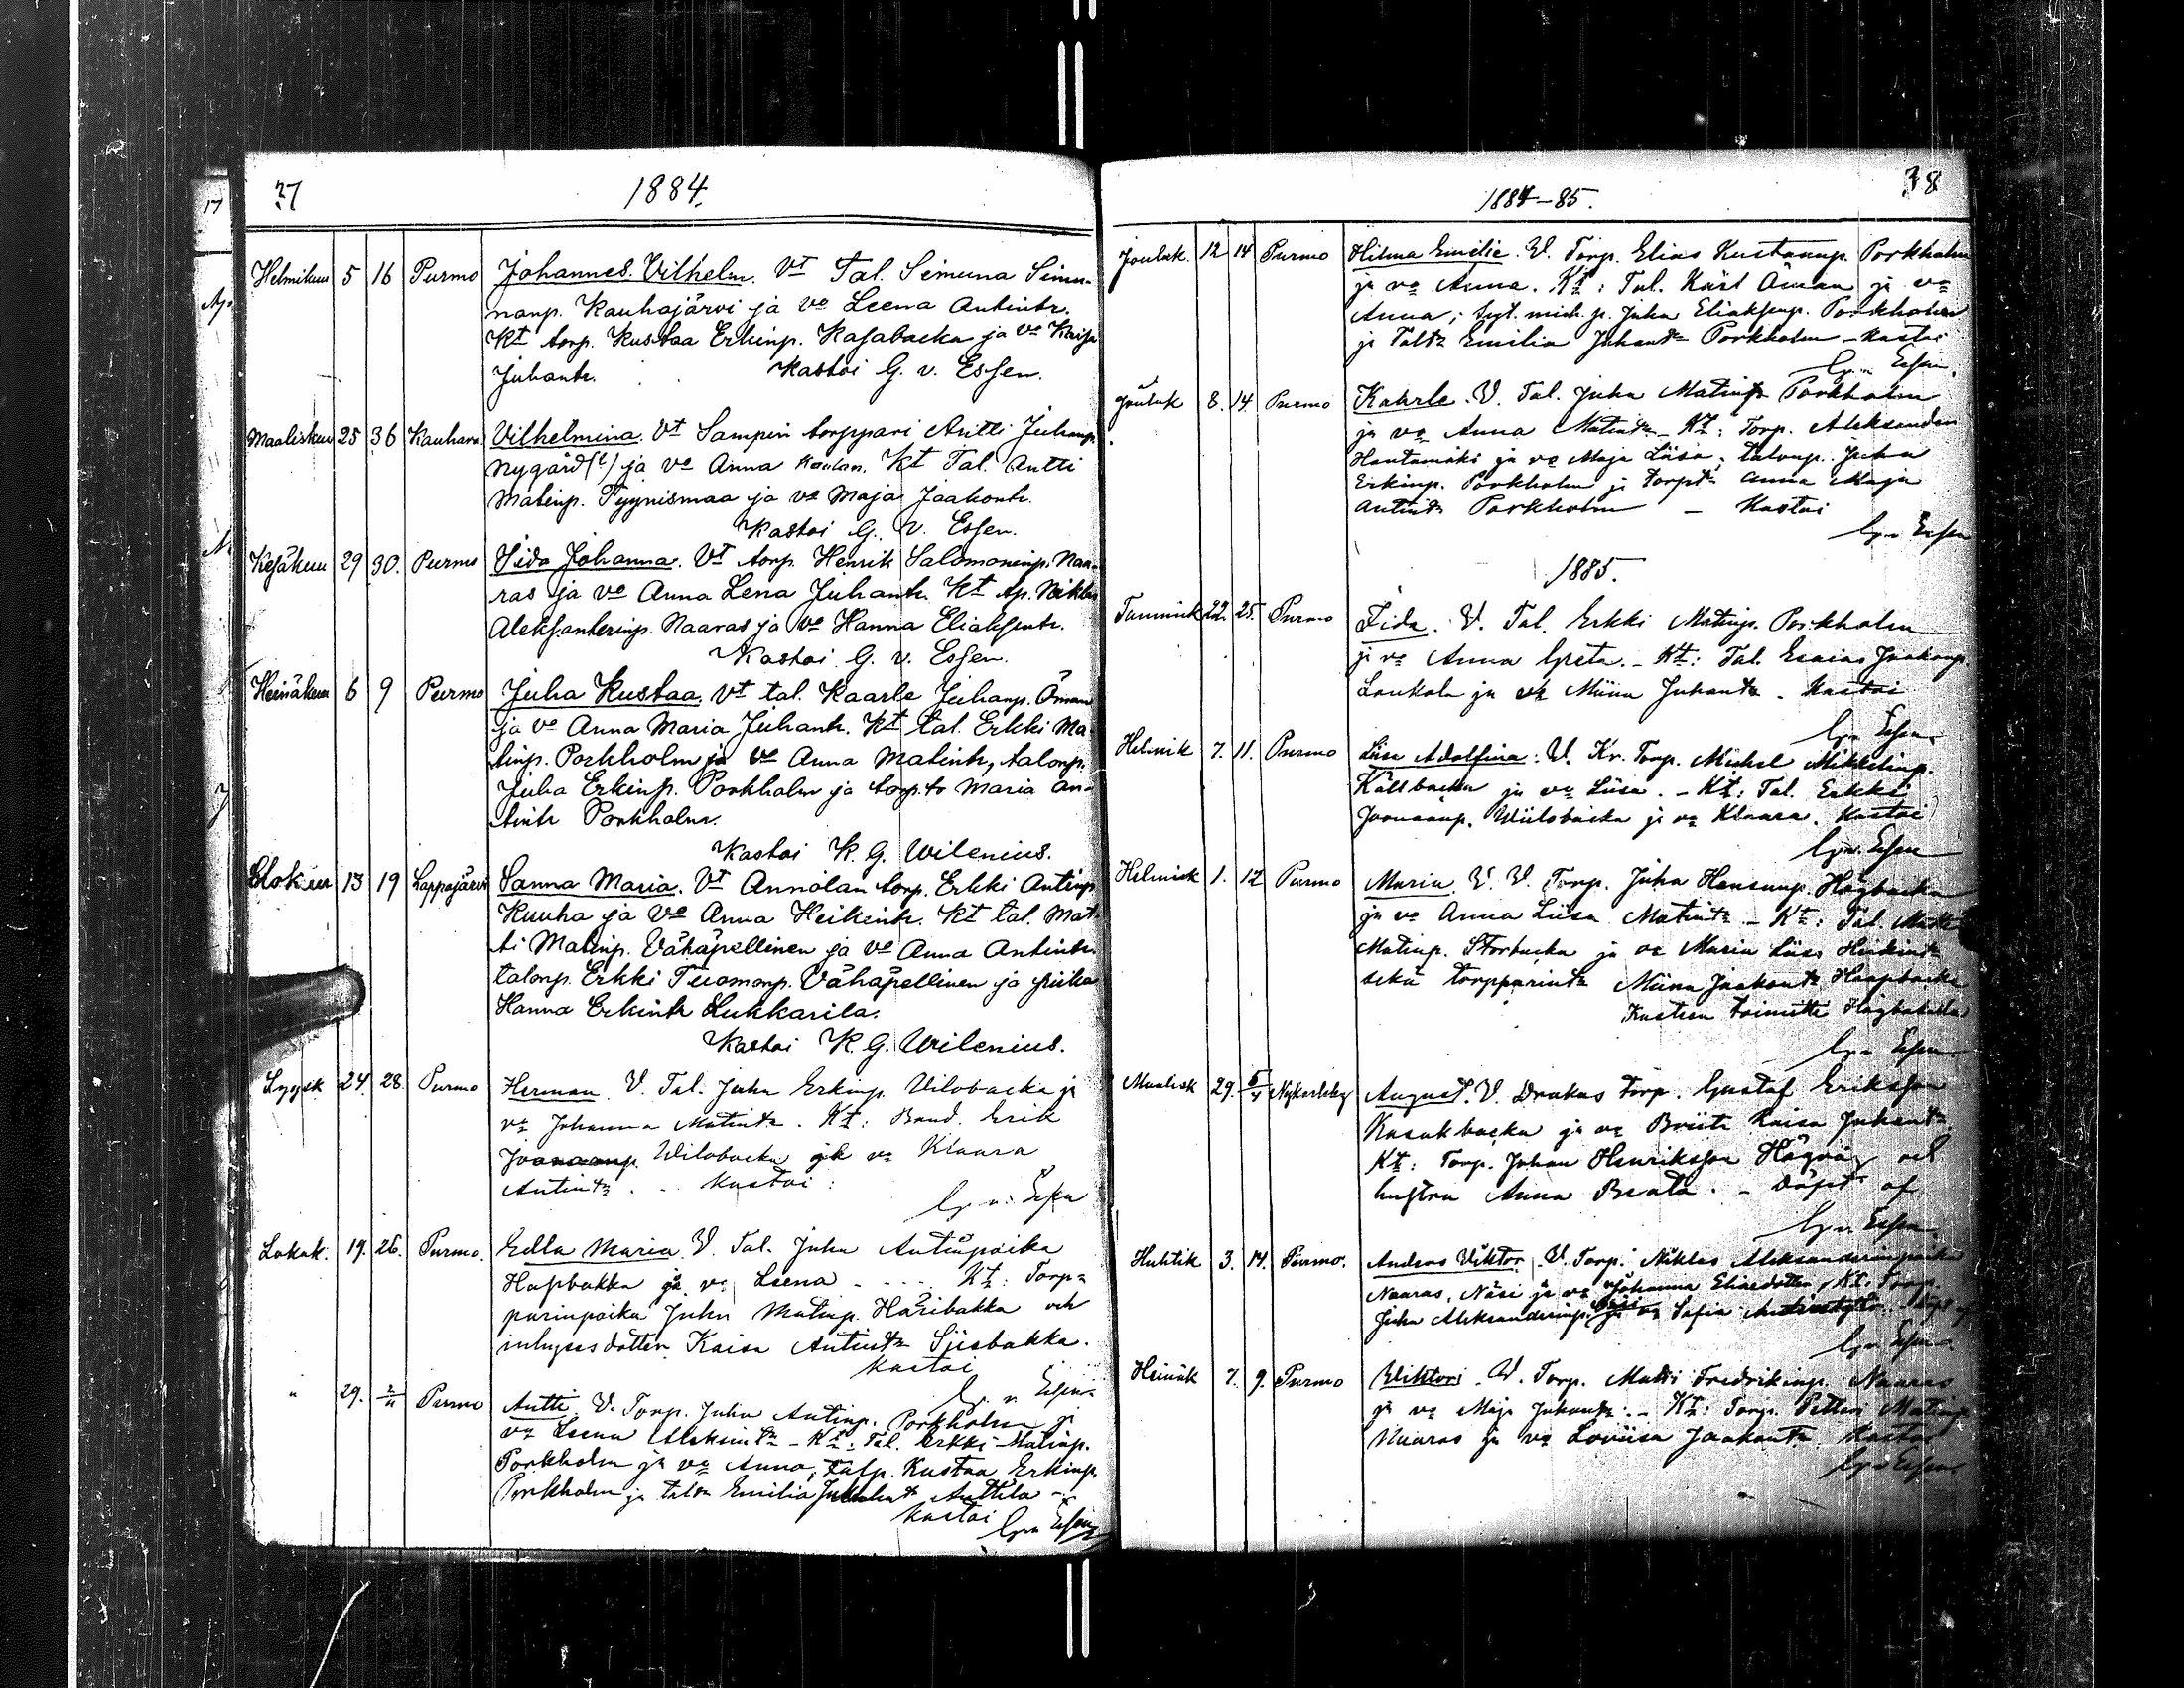 37
1884.
Helmikuu 5 16 Purmo Johannes Vilhelm. Vt Tal. Simuna Simu-
nanp. Kauhajärvi ja vo Leena Antintr.
Kt torp. Kustaa Erkinp. Kasabacka ja vo Kaisa
Juhantr. Kastoi G. v. Essen.
Maaliskuu 25 36 Kauhava Vilhelmina. Vt Sampin torppari Antti Juhanp.
Nygård(?) ja vo Anna Kt Tal. Antti
Matinp. Tyynismaa ja vo Maja Jaakontr.
Kastoi G. v. Essen.
Kesäkuu 29 30. Purmo Sida Johanna. Vt torp. Henrik Salomoninp. Naa-
ras ja vo Anna Lena Juhantr. Kt tp. Niklas
Aleksanterinp. Naaras ja vo Hanna Eliaksentr.
Kastoi G. v. Essen.
Heinäkuu 6 9 Purmo Juha Kustaa. Vt tal. Kaarle Juhanp. Öman
ja vo Anna Maria Juhantr. Kt tal. Erkki Ma-
tinp. Porkholm ja vo Anna Matintr, talonp.
Juha Erkinp. Porkholm ja torp.tr Maria An-
tintr Porkholm.
Kastoi K. G. Wilenius.
Elokuu 13 19 Lappajärvi Sanna Maria. Vt Annolan torp. Erkki Antinp.
Kuuha ja vo Anna Heikintr. Kt tal. Mat-
ti Matinp. Vähäpellinen ja vo Anna Antintr.
talonp. Erkki Tuomonp. Vähäpellinen ja piika
Hanna Erkintr Lukkarila.
Kastoi K. G. Wilenius.
Syysk 24. 28. Purmo Herman. V. Tal. Juha Erkinp. Vilobacka ja
vo Johanna Matintr. Kt: Bond. Erik
Joonaanp. Wilobacka ja vo Klaara
Antintr. Kastoi:
G. v. Essen
Lokak. 19. 26. Purmo. Edla Maria V. Tal. Juha Antinpoika
Hapbakka ja vo Leena - - - - Kt: Torp-
parinpoika Juha Matinp. Häribakka och
inhysesdotter Kaisa Antintr Sjesbakka.
Kastoi
G. v. Essen
" 29. 2/11 Purmo Antti V. Torp. Juha Antinp. Porkholm ja
vo Leena Aleksintr - Kt: Tal. Erkki Matinp.
Porkholm ja vo Anna, talp. Kustaa Erkinp.
Porkholm ja taltr Emilia Anttila -
Kastoi
G. v. Essen
1884-85.
38
Jouluk. 12 14 Purmo Hilma Emilie. V. Torp. Elias Kustaanp. Porkholm
ja vo Anna. Kt: Tal. Karl Öman ja vo
Anna; Juha Eliaksenp. Porkholm
ja Taltr Emilia Juhantr Porkholm - Kastoi
G. v. Essen.
Jouluk 8. 14. Purmo Kaarle. V. Tal. Juha Matinp. Porkholm
ja vo Anna Matintr - Kt: Torp. Aleksander
Hautamäki ja vo Maja Liisa, talonp. Juha
Erkinp. Porkholm ja torptr Anna Maja
Antintr Porkholm - Kastoi
G. v. Essen
1885.
Tammik 22. 25. Purmo Fida. V. Tal. Erkki Matinp. Porkholm
ja vo Anna Greta. - Kt: Tal. Esaias Jaakonp.
Laukola ja vo Miina Juhantr - Kastoi
G. v. Essen
Helmik 7. 11. Purmo Liisa Adolfina: V. Kr. Torp. Michel Mikkelinp.
Källbacka ja vo Liisa. - Kt: Tal. Erkki
Joonaanp. Wiilobacka ja vo Klaara. Kastoi
G. v. Essen
Helmik 1. 12 Purmo Maria. V. V. Torp. Juha Hansunp. Högbacka
ja vo Anna Liisa Matintr - Kt: Tal. Matti
Matinp. Storbacka ja vo Maria Liisa Heikintr
sekä torpparintr Miina Jaakontr Haapbacka
Kasteen toimitti Högbackalla
G. v. Essen
Maalisk 29. 5/4 Nykarleby August. V. Drakas torp. Gustaf Eriksson
Kasakbacka ja vo Briita Kaisa Juhantr.
Kt: Torp. Johan Henriksson Högväg och
hustru Anna Beata. - Döpt af
G. v. Essen
Huhtik 3. 14. Purmo. Anders Viktor. V. Torp. Niklas Aleksanderinpoika
Naaras, Näsi ja vo Johanna Eliaedotter, Kt. Torp.
Juha Aleksanderinp. Näsi ja vo Sofia Döpt af
G. v. Essen
Heinäk 7. 9. Purmo Wiktori. V. Torp. Matti Fredrikinp. Naaras
ja vo Maja Juhantr: - Kt: Torp. Petteri Matinp
Naaras ja vo Loviisa Jaakontr. Kastoi
G. v. Essen